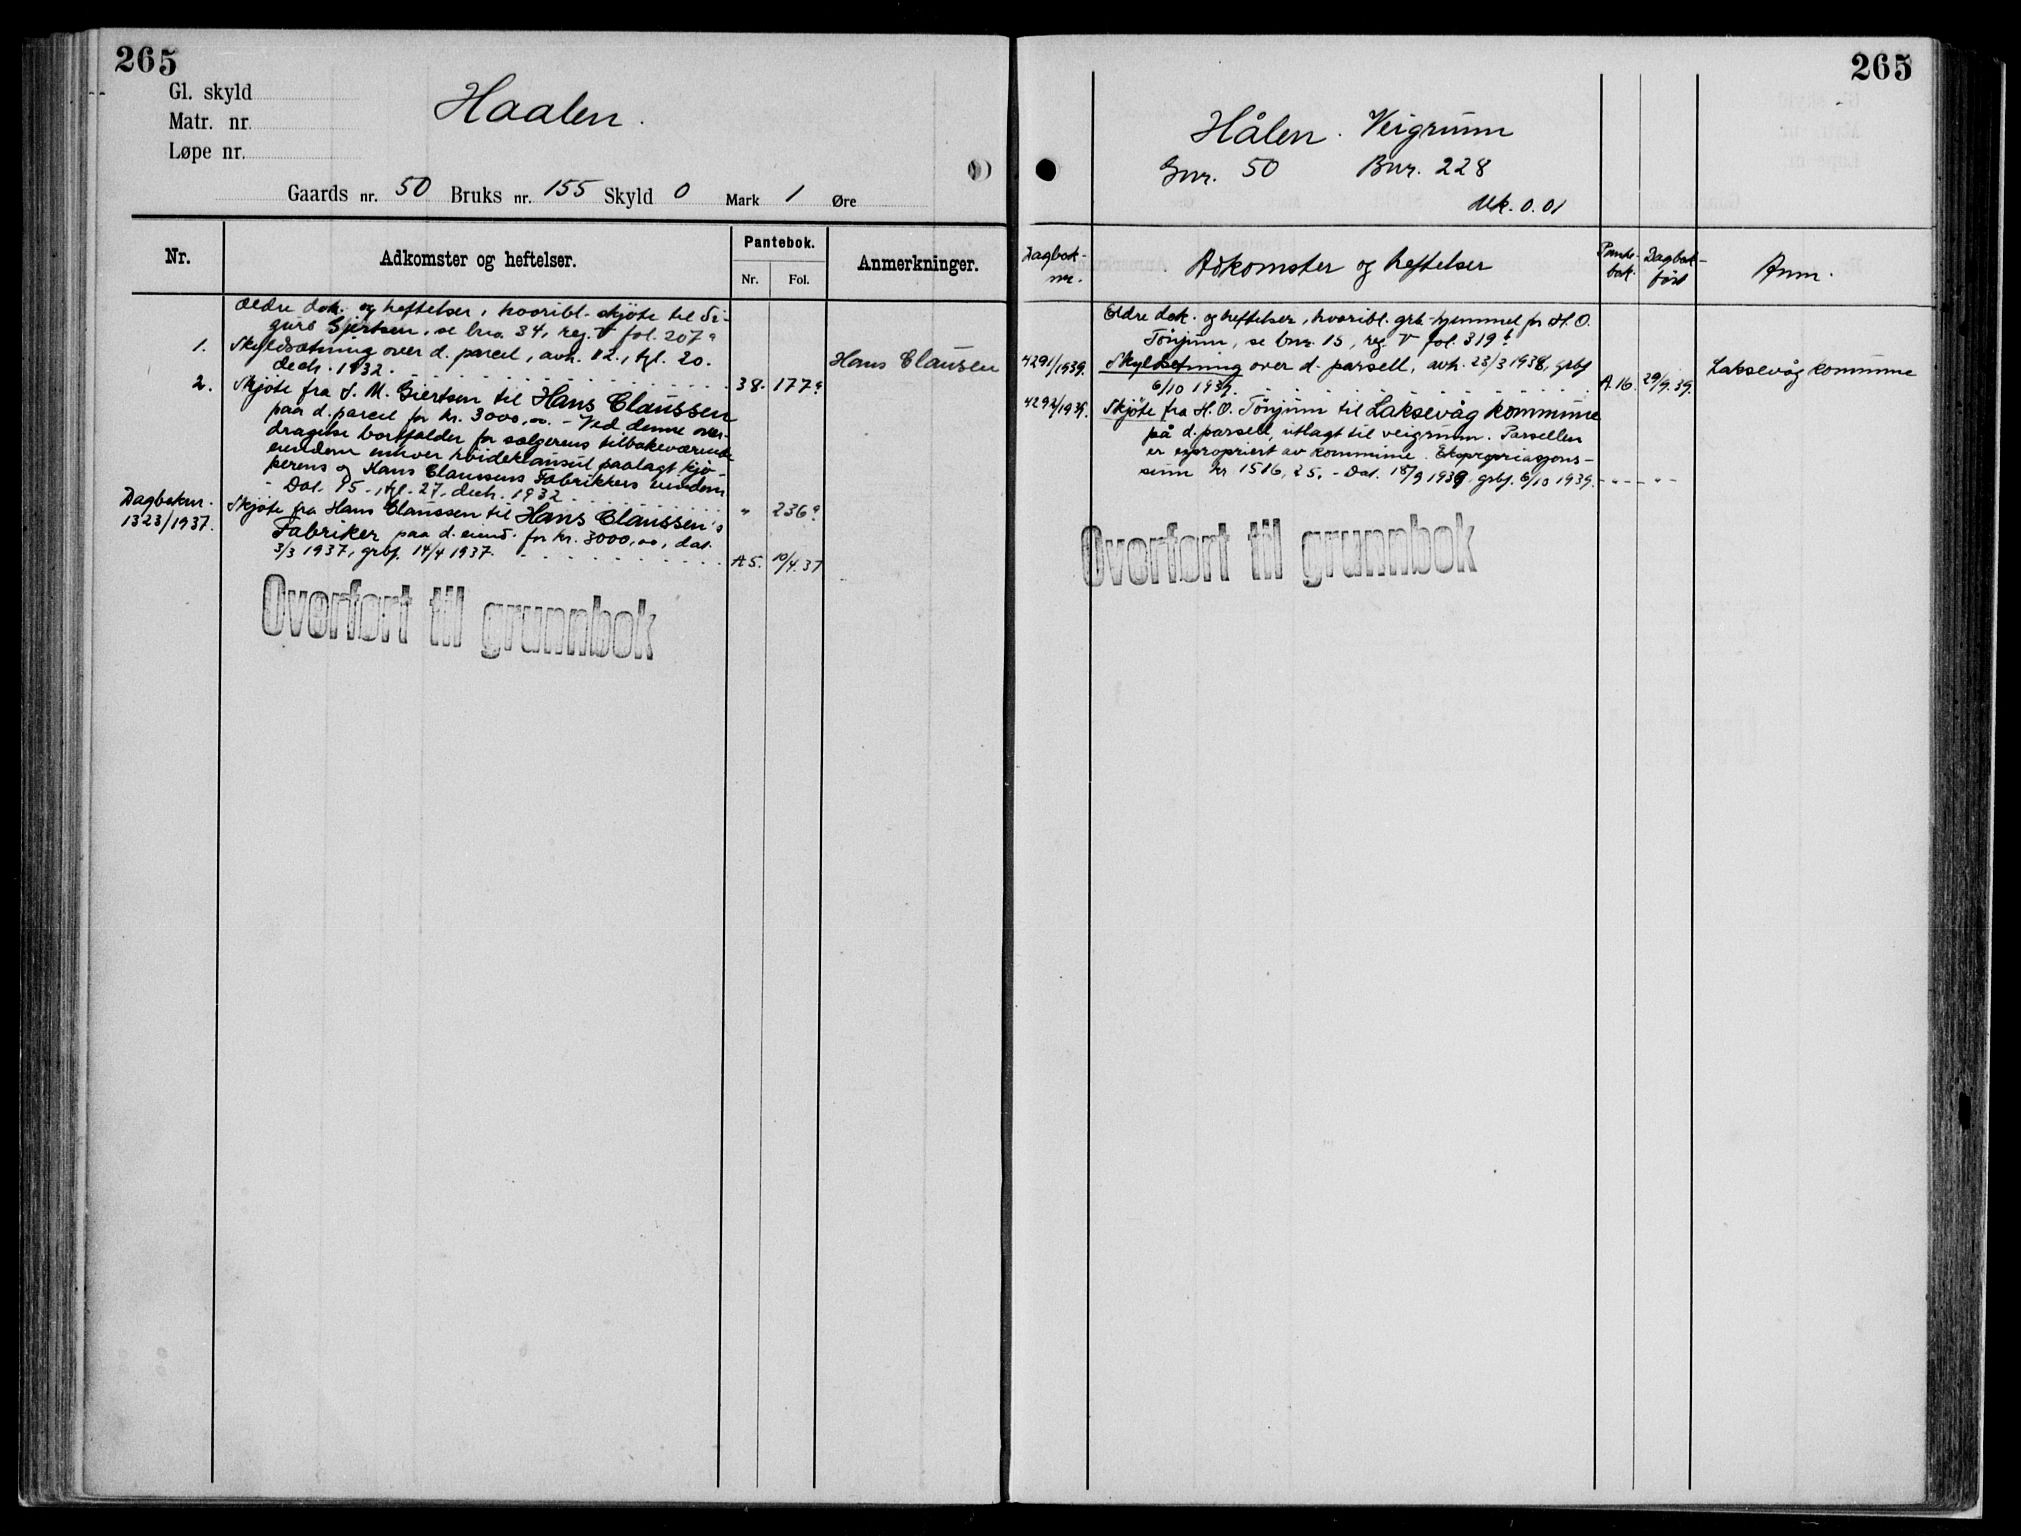 265
Gl. skyld
Matr. nr.
Løpe nr.
Haalen.
Gaards nr. 50 Bruks nr. 155 Skyld 0 Mark 1 Øre
Nr.
Adkomster og heftelser.
Pantebok.
Nr. Fol.
Anmerkninger.
Ældre dok. og heftelser, hvoribl. skjøte til Si-
gurd Gjertsen, se bno. 34, reg. V fol. 207a
1. Skyldsætning over d. parcel, avh. 12., tgl. 20.
decbr. 1932. 38. 177a
Hans Clausen
2. Skjøte fra S. M. Giertsen til Hans Claussen
paa d. parcel for kr. 3000,00. - Ved denne over-
dragelse bortfalder for sælgerens tilbakeværende
eiendom enhver hvideklausul paalagt kjø-
perens og Hans Claussens Fabrikkers eiendom
- Dat. 15., tgl. 27. decbr. 1932 " 236a
Dagboknr.
1323/1937.
Skjøte fra Hans Claussen til Hans Claussen's
Fabriker paa d. eiend. for kr. 3000,00, dat.
3/3 1937, grbf. 14/4 1937. A 5. 10/4.37
Overført til grunnbok
265
Hålen. Veigrunn
Gnr. 50 Bnr. 228
Mk. 0.01
Dagbok-
nr.
Adkomster og heftelser
Pante-
bok
Dagbok-
ført
Anm.
Eldre dok. og heftelser, hvoribl. grb.-hjemmel for H. O.
Tönjum, se bnr. 15, reg. V fol. 319b
4291/1939. Skyldsetning over d. parsell, avh. 23/3 1938, grbf
6/10 1939. A 16. 29/9.39.
Laksevåg kommune
4292/1939. Skjöte fra H. O. Tönjum til Laksevåg kommune
på d. parsell, utlagt til veigrunn. Parsellen
er expropriert av kommune. Ekspropriasjons-
sum kr. 1516,25. - Dat. 18/9 1939, grbf. 6/10 1939. - " - - " -
Overført til grunnbok